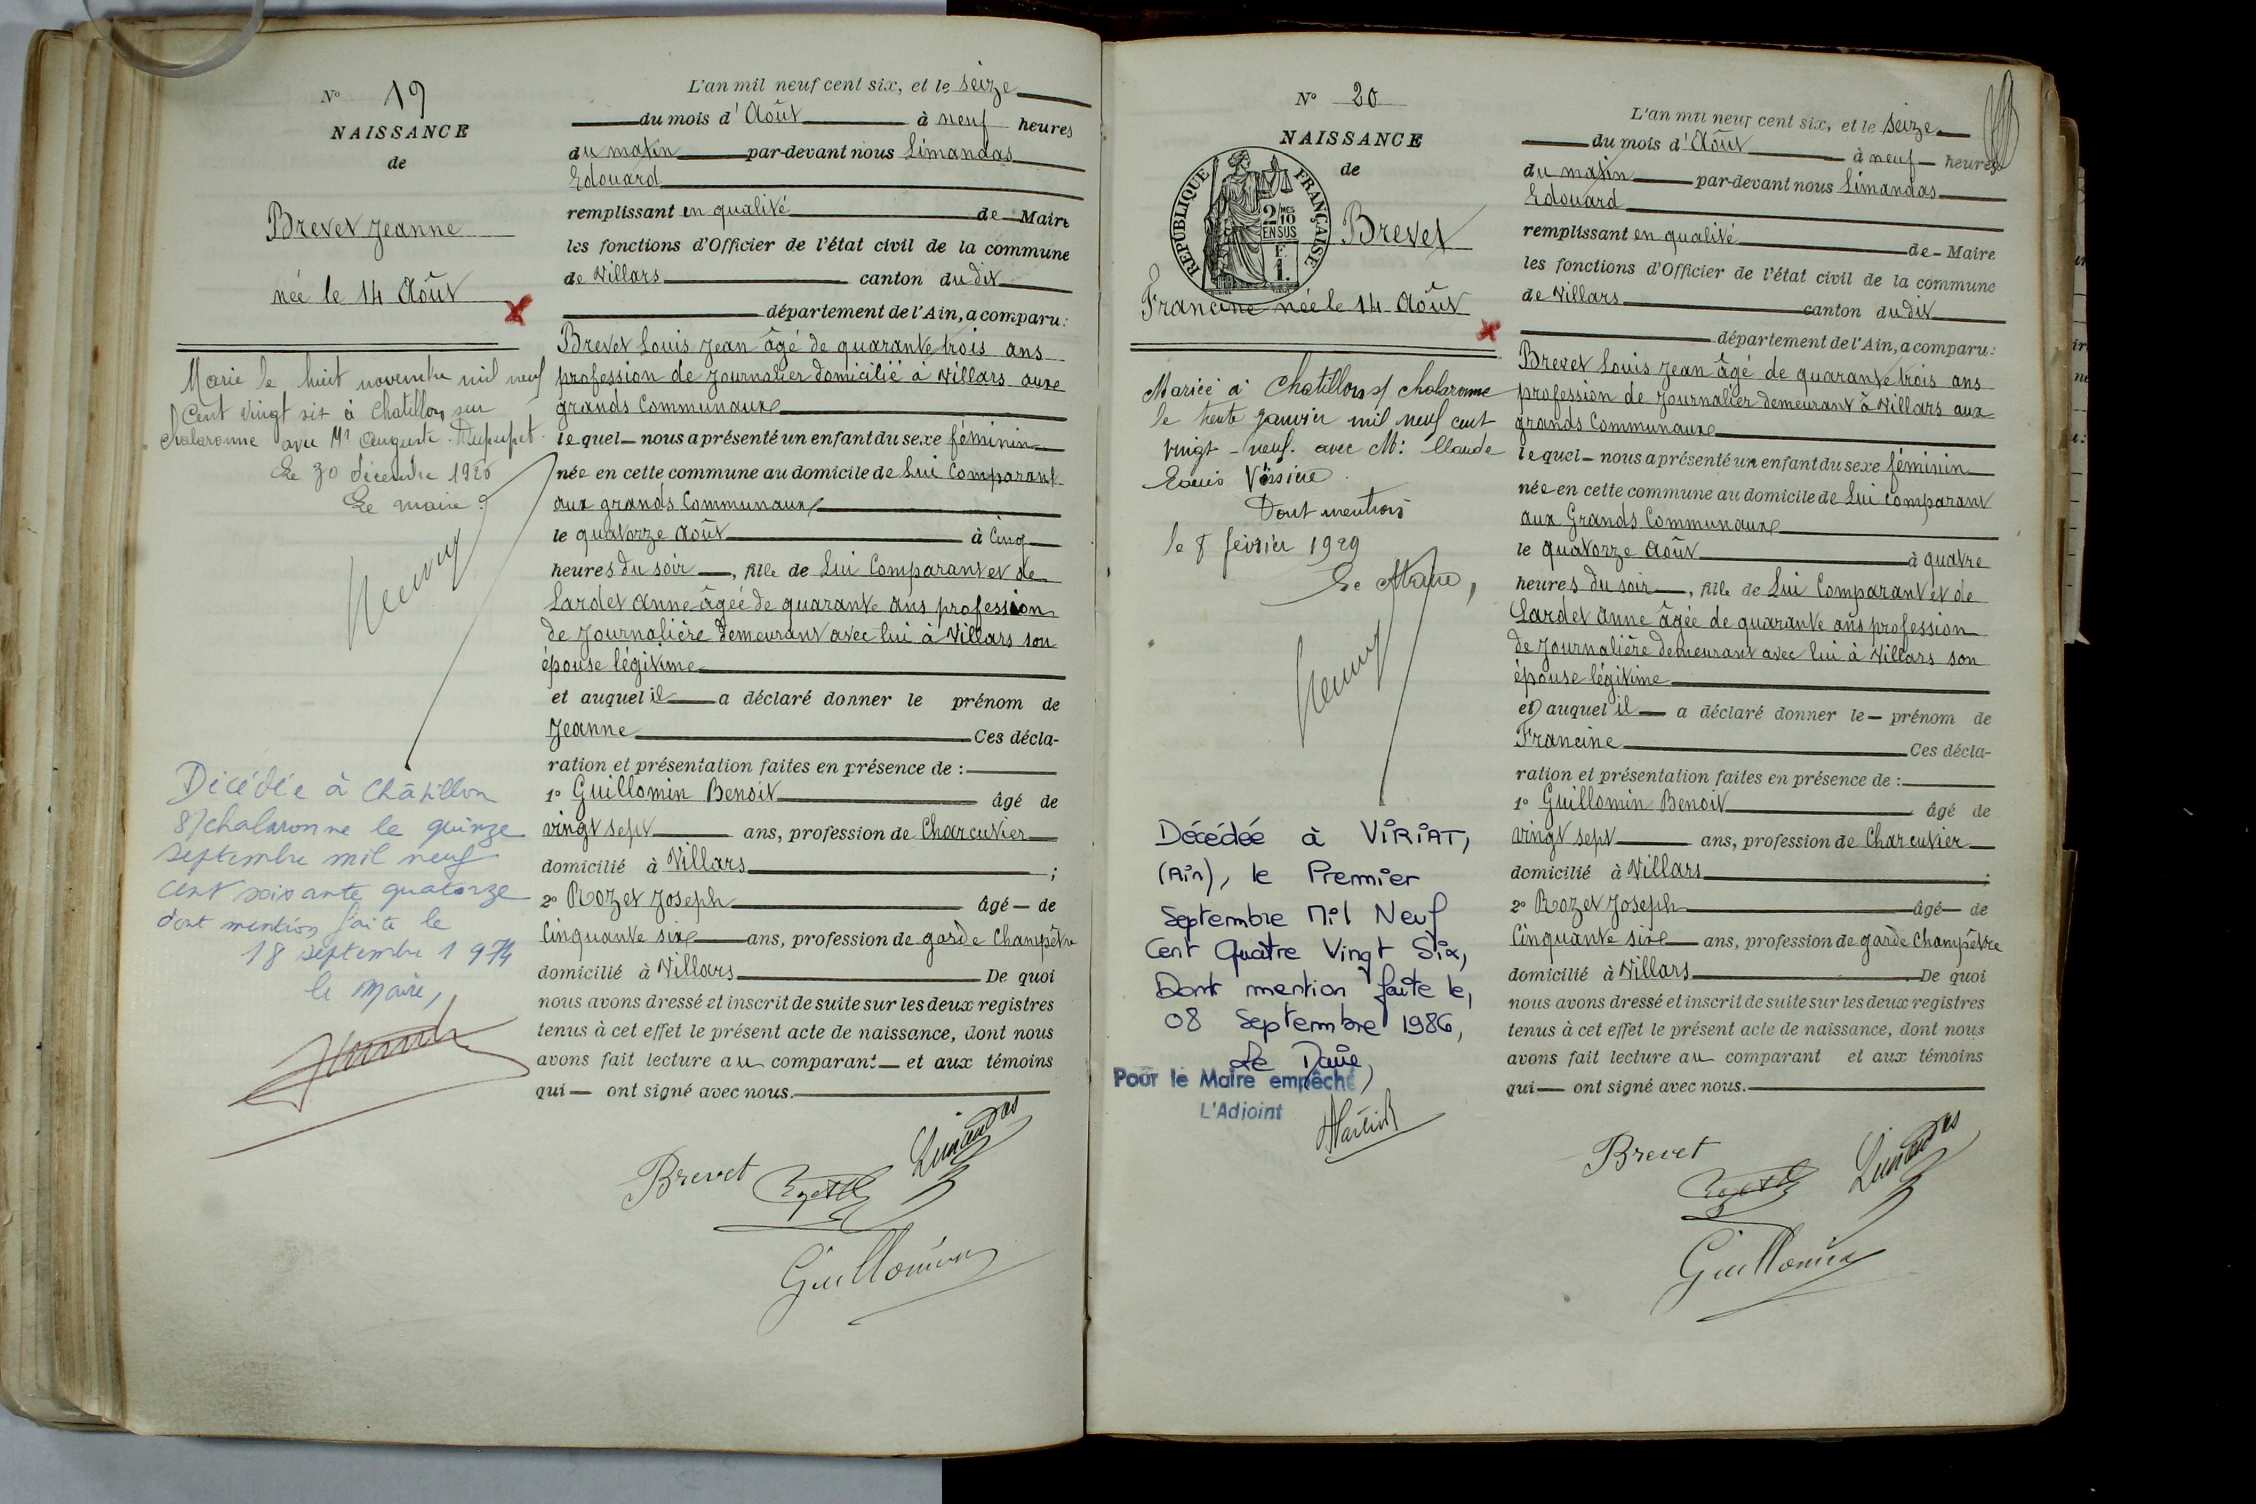 N° 19
NAISSANCE
de
Brevet Jeanne
née le 14 Août
Marié le huit novembre mil neuf
Cent vingt six à Chatillon sur
Chalaronne avec Mr Auguste
Le 30 décembre 1926
Le maire :
Décédée à Châtillon
s/chalaronne le quinze
septembre mil neuf
cent soixante quatorze
dont mention faite le
18 septembre 1974
le Maire,
L'an mil neuf cent six, et le seize
du mois d'Août à neuf heures
du matin par-devant nous Limandas
Edouard
remplissant en qualité de Maire
les fonctions d'Officier de l'état civil de la commune
de Villars canton du dit
département de l'Ain, a comparu :
Brevet Louis Jean âgé de quarante trois ans
profession de Journalier domicilié à Villars aux
grands Communaux
lequel nous a présenté un enfant du sexe féminin
née en cette commune au domicile de Lui Comparant
aux grands Communaux
le quatorze Août à Cinq
heures du soir, fille de Lui Comparant et de
Lardet Anne âgée de quarante ans profession
de Journalière demeurant avec lui à Villars son
épouse légitime
et auquel il a déclaré donner le prénom de
Jeanne Ces décla-
ration et présentation faites en présence de :
1° Guillomin Benoit âgé de
vingt sept ans, profession de Charcutier
domicilié à Villars ;
2° Rozet Joseph âgé de
Cinquante six ans, profession de garde Champêtre
domicilié à Villars De quoi
nous avons dressé et inscrit de suite sur les deux registres
tenus à cet effet le présent acte de naissance, dont nous
avons fait lecture au comparant et aux témoins
qui ont signé avec nous.
Brevet Limandas
Guillomin
N° 20
NAISSANCE
de
RÉPUBLIQUE FRANÇAISE
2/10 MES
EN SUS
F.
1.
Brevet
Francine née le 14 Août
Mariée à Chatillon s/ Chalaronne
le trente janvier mil neuf cent
vingt-neuf avec M. Claude
Louis
Dont mention
le 8 février 1929
Le Maire,
Décédée à VIRIAT,
(Ain), le Premier
Septembre Mil Neuf
Cent Quatre Vingt Six,
Dont mention faite le,
08 Septembre 1986,
Le Maire,
Pour le Maire empêché
L'Adjoint
L'an mil neuf cent six, et le seize
du mois d'Août à neuf heures
du matin par-devant nous Limandas
Edouard
remplissant en qualité de Maire
les fonctions d'Officier de l'état civil de la commune
de Villars canton du dit
département de l'Ain, a comparu :
Brevet Louis Jean âgé de quarante trois ans
profession de Journalier demeurant à Villars aux
grands Communaux
lequel nous a présenté un enfant du sexe féminin
née en cette commune au domicile de Lui comparant
aux Grands Communaux
le quatorze Août à quatre
heures du soir, fille de Lui Comparant et de
Lardet Anne âgée de quarante ans profession
de Journalière demeurant avec lui à Villars son
épouse légitime
et auquel il a déclaré donner le prénom de
Francine Ces décla-
ration et présentation faites en présence de :
1° Guillomin Benoit âgé de
vingt sept ans, profession de Charcutier
domicilié à Villars ;
2° Rozet Joseph âgé de
Cinquante six ans, profession de garde Champêtre
domicilié à Villars De quoi
nous avons dressé et inscrit de suite sur les deux registres
tenus à cet effet le présent acte de naissance, dont nous
avons fait lecture au comparant et aux témoins
qui ont signé avec nous.
Brevet Limandas
Guillomin